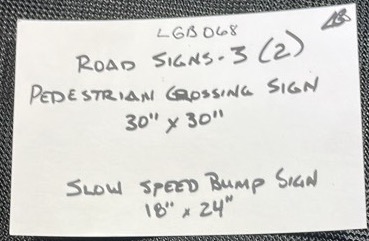 LGB068
ROAD SIGNS-3 (2)
PEDESTRIAN CROSSING SIGN
30" x 30"
SLOW SPEED BUMP SIGN
18" x 24"